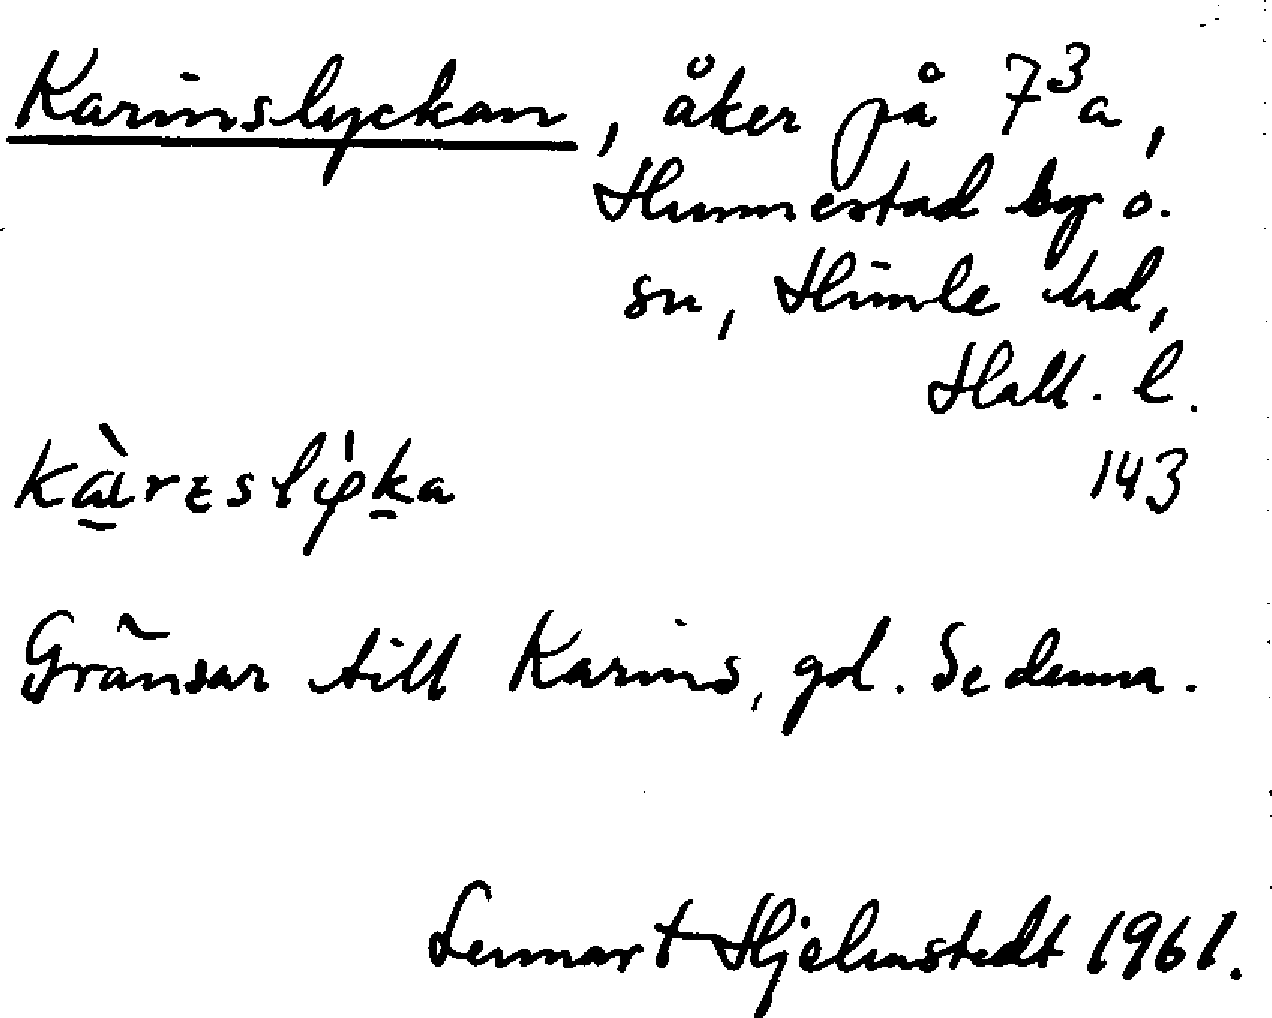 Karinslyckan, åker på 7³a,
Hunnestad by o.
sn, Himle hd,
Hall. l.
143
Gränsar till Karins, gd. Se denna.
Lennart Hjelmstedt 1961.